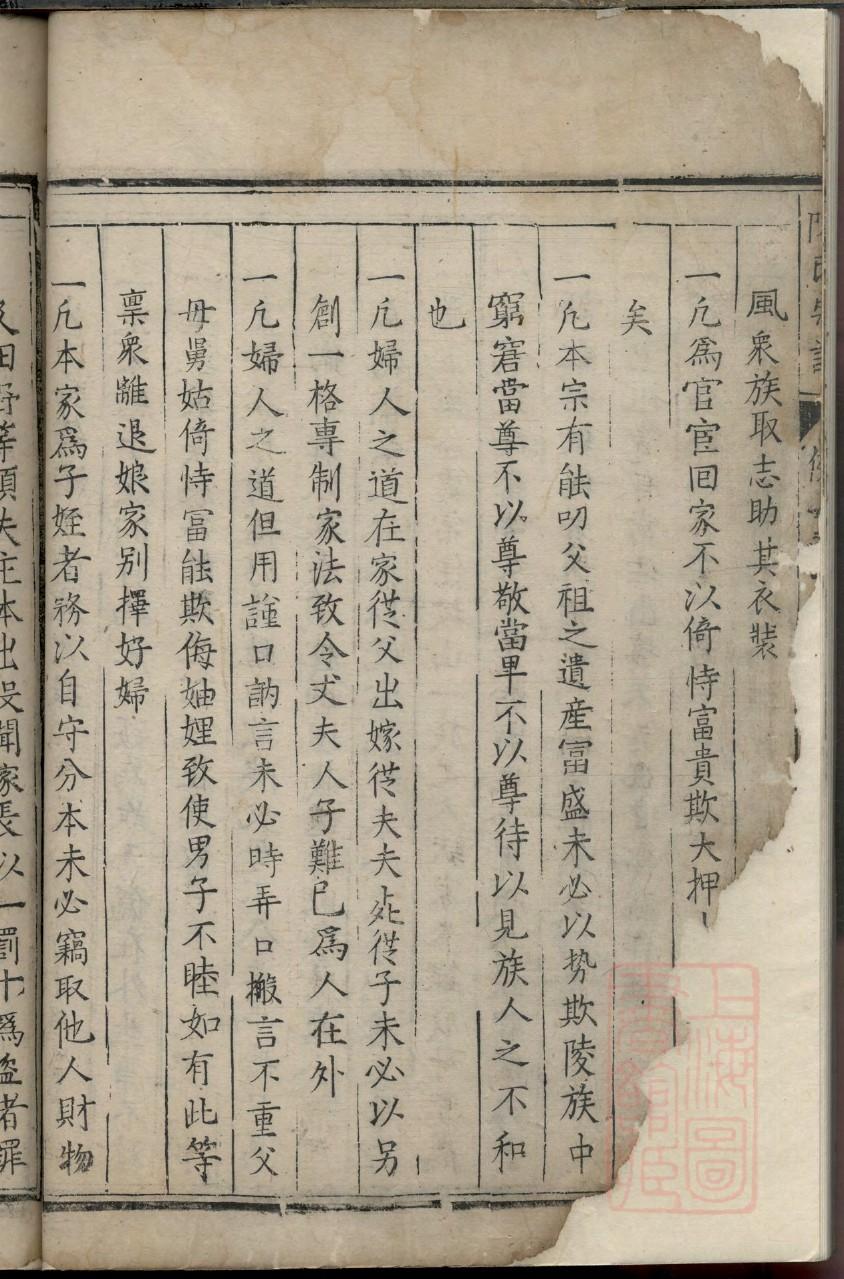 風衆族取志助其衣裝
一凢爲官宦囬家不以倚恃富貴欺大押
矣
一凢本宗有能叨父祖之遺産冨盛未必以势欺陵族中
窮窘當尊不以尊敬當早不以尊待以見族人之不和
也
一凢婦人之道在家從父出嫁從夫夫死從子未必以另
創一格專制家法致令丈夫人子難已爲人在外
一凢婦人之道但用謹口訥言未必時弄口搬言不重父
母舅姑倚恃冨能欺侮妯娌致使男子不睦如有此等
禀衆離退娘家别擇好婦
一凢本家爲子姪者務以自守分本未必竊取他人財物
田野等項失主本出投聞家長以一罰十爲盗者罪
上海圖書館藏